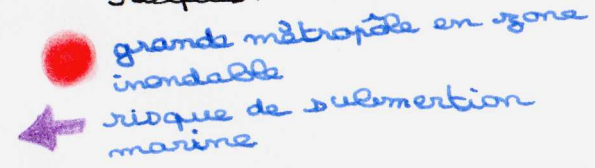 grande mêtropôle en zone
inondable
risque de submertion
marine